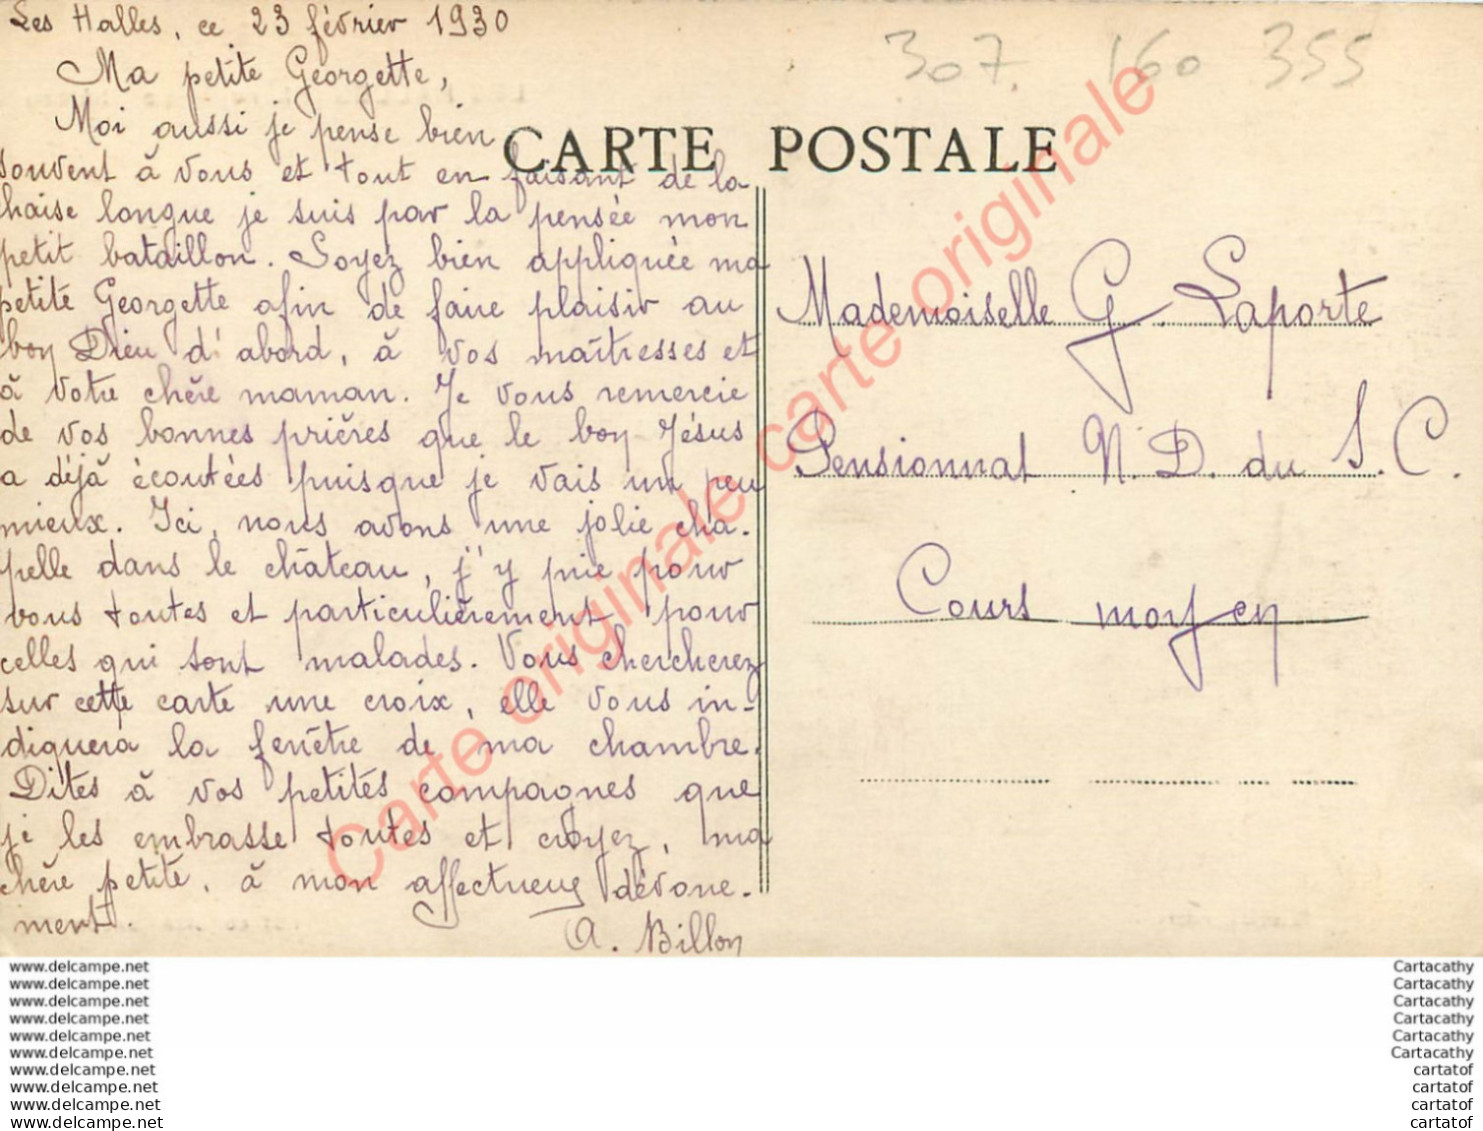 Les Halles, ce 23 février 1930
307. 160 355
Ma petite Georgette,
Moi aussi je pense bien
souvent à vous et tout en faisant de la
chaise longue je suis par la pensée mon
petit bataillon. Soyez bien appliquée ma
petite Georgette afin de faire plaisir au
bon Dieu d'abord, à vos maîtresses et
à votre chère maman. Je vous remercie
de vos bonnes prières que le bon Jésus
a déjà écoutées puisque je vais un peu
mieux. Ici, nous avons une jolie cha-
pelle dans le château, j'y prie pour
vous toutes et particulièrement pour
celles qui sont malades. Vous chercherez
sur cette carte une croix, elle vous in-
diquera la fenêtre de ma chambre.
Dites à vos petites compagnes que
je les embrasse toutes et croyez, ma
chère petite, à mon affectueux dévoue-
ment.
A. Billon
CARTE POSTALE
Mademoiselle G. Laporte
Pensionnat N. D. du S. C.
Cours moyen
Carte originale carte originale carte originale
www.delcampe.net
www.delcampe.net
www.delcampe.net
www.delcampe.net
www.delcampe.net
www.delcampe.net
www.delcampe.net
www.delcampe.net
www.delcampe.net
www.delcampe.net
Cartacathy
Cartacathy
Cartacathy
Cartacathy
Cartacathy
Cartacathy
cartatof
cartatof
cartatof
cartatof